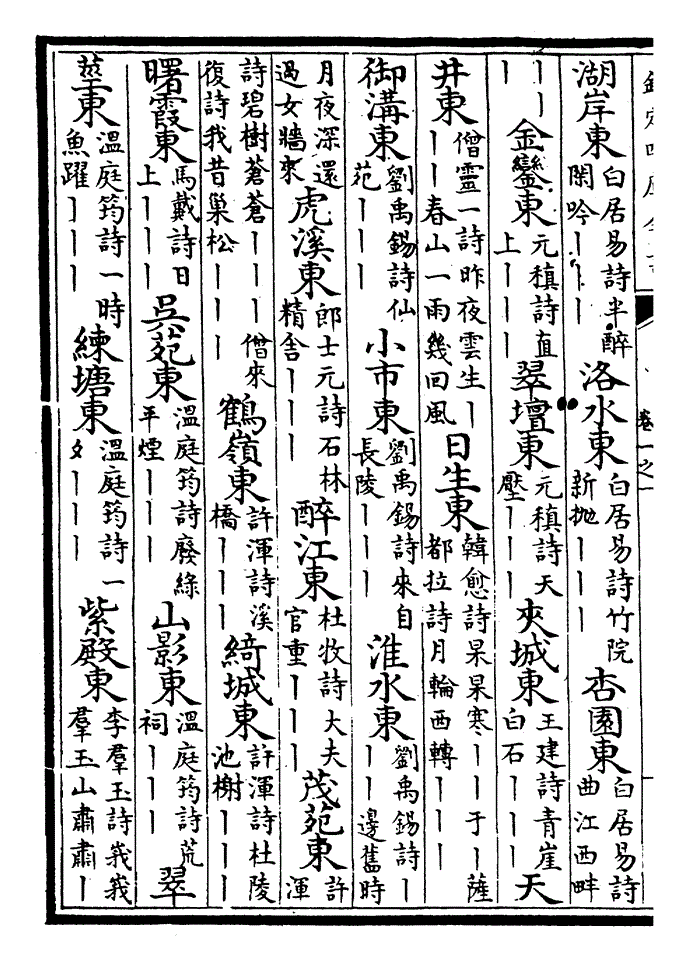 卷一之一
湖岸東白居易詩半醉閑吟丨丨丨洛水東白居易詩竹院新抛丨丨丨杏園東白居易詩曲江西畔
丨丨丨金鑾東元稹詩直上丨丨丨翠壇東元稹詩天壓丨丨丨夾城東王建詩青崖白石丨丨丨天
井東僧靈一詩昨夜雲生丨丨丨春山一雨幾回風日生東韓愈詩杲杲寒丨丨于丨薩都拉詩月輪西轉丨丨丨
御溝東劉禹錫詩仙苑丨丨丨小市東劉禹錫詩來自長陵丨丨丨淮水東劉禹錫詩丨丨丨邊舊時
月夜深還過女牆來虎溪東郎士元詩石林精舍丨丨丨醉江東杜牧詩大夫官重丨丨丨茂苑東許渾
詩碧樹蒼蒼丨丨丨僧來復詩我昔巢松丨丨丨鶴嶺東許渾詩溪橋丨丨丨綺城東許渾詩杜陵池榭丨丨丨
曙霞東馬戴詩日上丨丨丨吳苑東溫庭筠詩廢綠平煙丨丨丨山影東溫庭筠詩荒祠丨丨丨翠
莖東溫庭筠詩一時魚躍丨丨丨練塘東溫庭筠詩一夕丨丨丨紫殿東李羣玉詩峩峩羣玉山肅肅丨